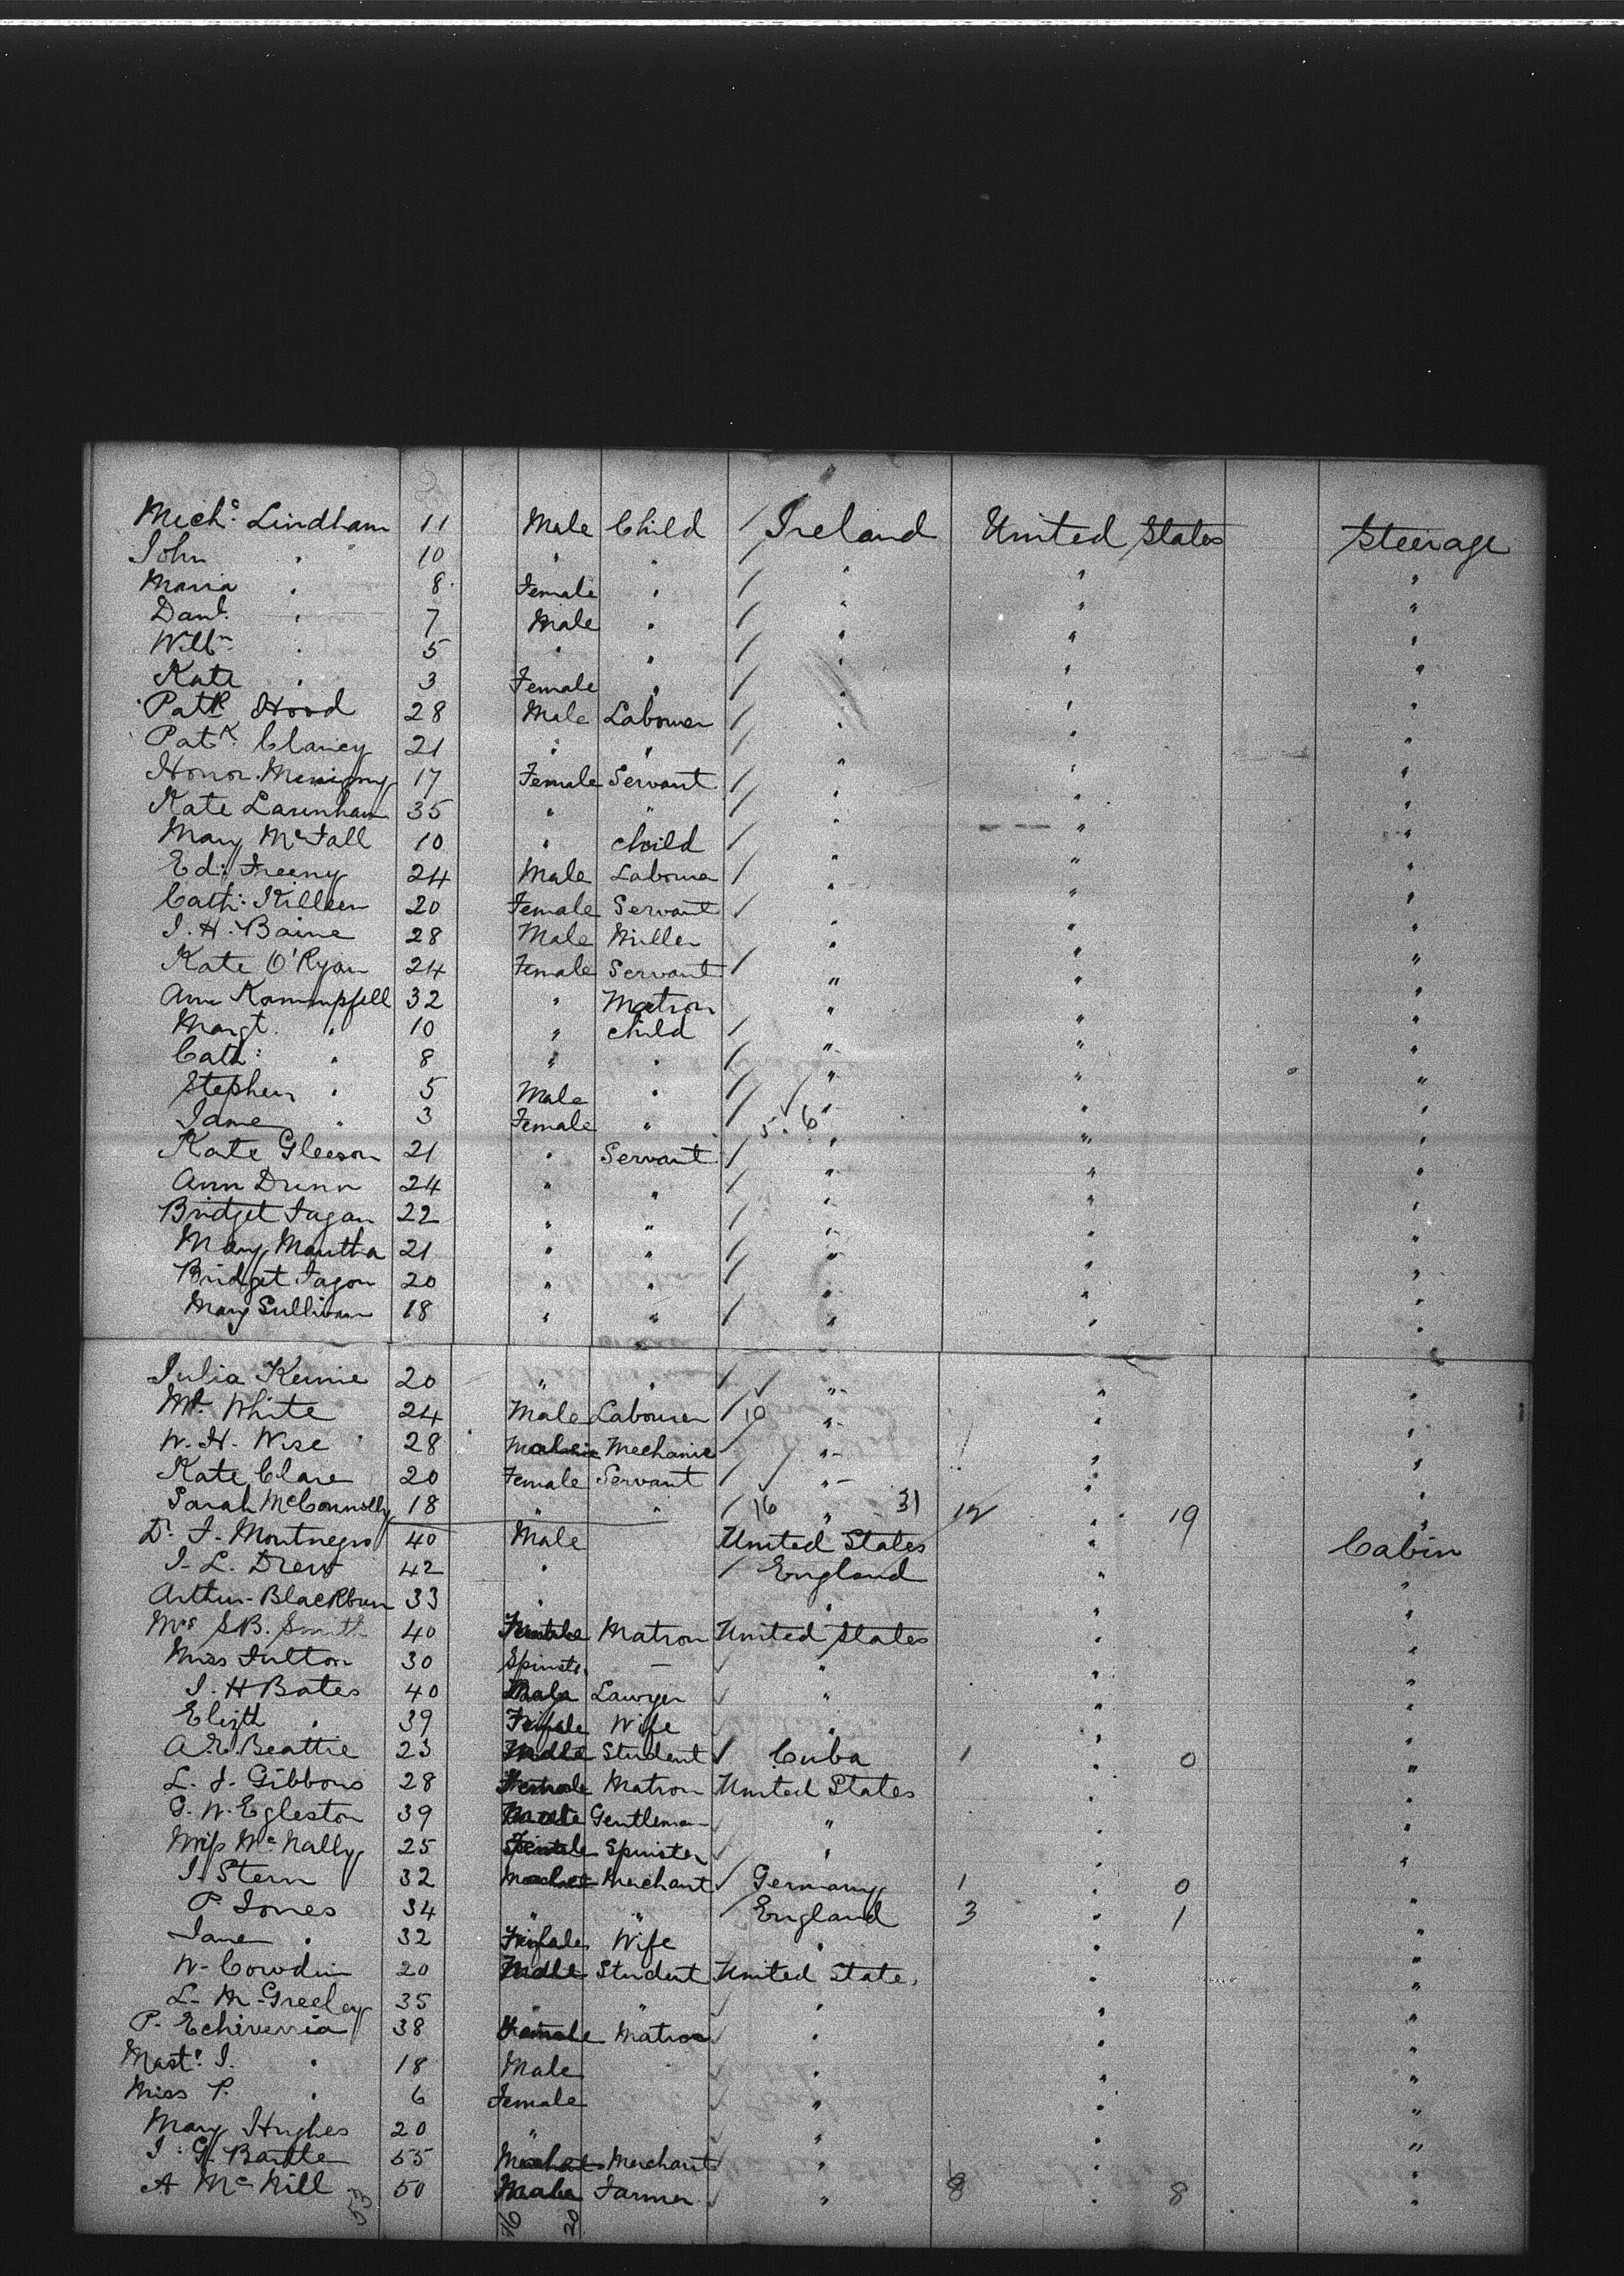 Mich<sup>l</sup> Lindham 11 Male Child / Ireland United States Steerage
John " 10 " " / " " "
Maria " 8 Female " / " " "
Danl. " 7 Male " / " " "
Willm " 5 " " / " " "
Kate " 3 Female " / " " "
Patk Hood 28 Male Labourer / " " "
Patk. Clancy 21 " " / " " "
Honor 17 Female Servant / " " "
Kate Larenham 35 " " / " " "
Mary McFall 10 " child / " " "
Ed: Freeny 24 Male Laboura / " " "
Cath: Killeen 20 Female Servant / " " "
J. H. Baine 28 Male Miller " " "
Kate O'Ryan 24 Female Servant / " " "
Ann Kammpfell 32 " Matron " " "
Margt. " 10 " child / " " "
Cath: " 8 " " / " " "
Stephen " 5 Male " / / " " "
Jane " 3 Female " / 5. 6 " " "
Kate Gleeson 21 " Servant / " " "
Ann Dunn 24 " " / " " "
Bridget Fagan 22 " " / " " "
Mary Mautha 21 " " / " " "
Bridget Fagon 20 " " / " " "
Mary Sullivan 18 " " / " " "
Julia Kennie 20 " " / ✓ " " "
White 24 Male Labourer / 10 " " "
W. H. Wise 28 Male Mechanic / / " / " "
Kate Clare 20 Female Servant / ✓ " " "
Sarah McConnolly 18 " " / 16 " 31 12 " 19 "
Dr. J. Montnegro 40 Male United States " Cabin
J. L. Drew 42 " / England " "
Arthur Blackburn 33 " " " "
Mrs S.B. Smith 40 Female Matron United States " "
Miss Fulton 30 Spinstr — ✓ " " "
J. H Bates 40 Male Lawyer ✓ " " "
Elizth " 39 Female Wife ✓ " " "
A. E. Beattie 23 Male Student ✓ Cuba 1 " 0 "
L. J. Gibbons 28 Female Matron United States " "
G. W. Egleston 39 Male Gentleman ✓ " " "
Miss McNally 25 Female Spinster ✓ " " "
J. Stern 32 Male Merchant ✓ Germany 1 " 0 "
P. Jones 34 " " / England 3 " 1 "
Jane " 32 Female Wife " " "
W. Cowdin 20 Male Student United State. " "
L. M. Greeley 35 " " ✓ " " "
P. Echiverria 38 Female Matron ✓ " " "
Mastr. J. " 18 Male ✓ " " "
Miss P. " 6 Female ✓ " " "
Mary Hughes 20 " ✓ " " "
J. G. Battle 55 Male Merchant ✓ " " "
A McNill 50 Male Farmer ✓ " 8 " 8 "
53 16 20